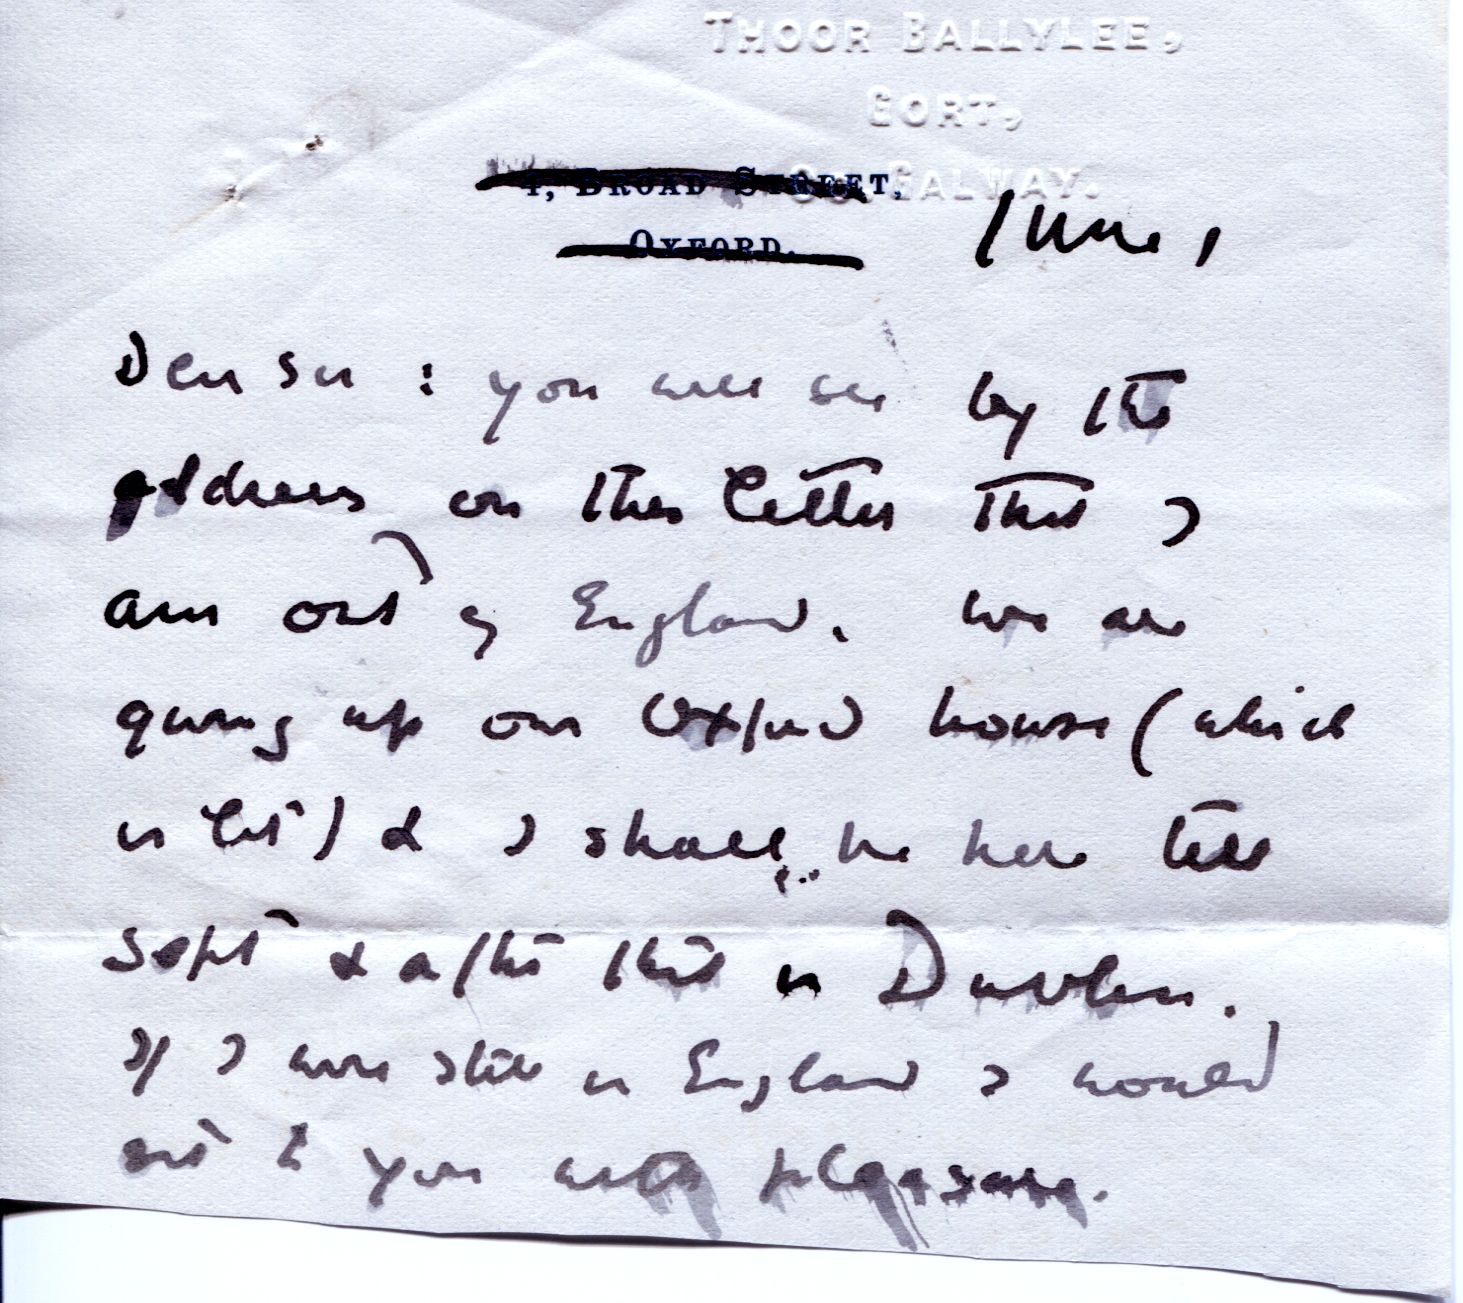 THOOR BALLYLEE,
GORT,
CO. GALWAY.
4, BROAD STREET,
OXFORD.
June 1
Dear Sir : you will see by the
address on this letter that I
am out of England. We are
giving up our Oxford house (which
is let) & I shall be here till
Sept & after that in Dublin.
If I were still in England I would
sit to you with pleasure.